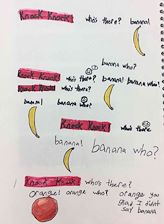 Knock Knock! who's there?
banana! banana who?
Knock Knock! who's there? banana! banana who?
Knock Knock! who's there?
banana! banana who?
Knock Knock! who's there
banana! banana who?
Knock Knock! who's there?
orange! orange who? orange you
glad I didn't
say banana